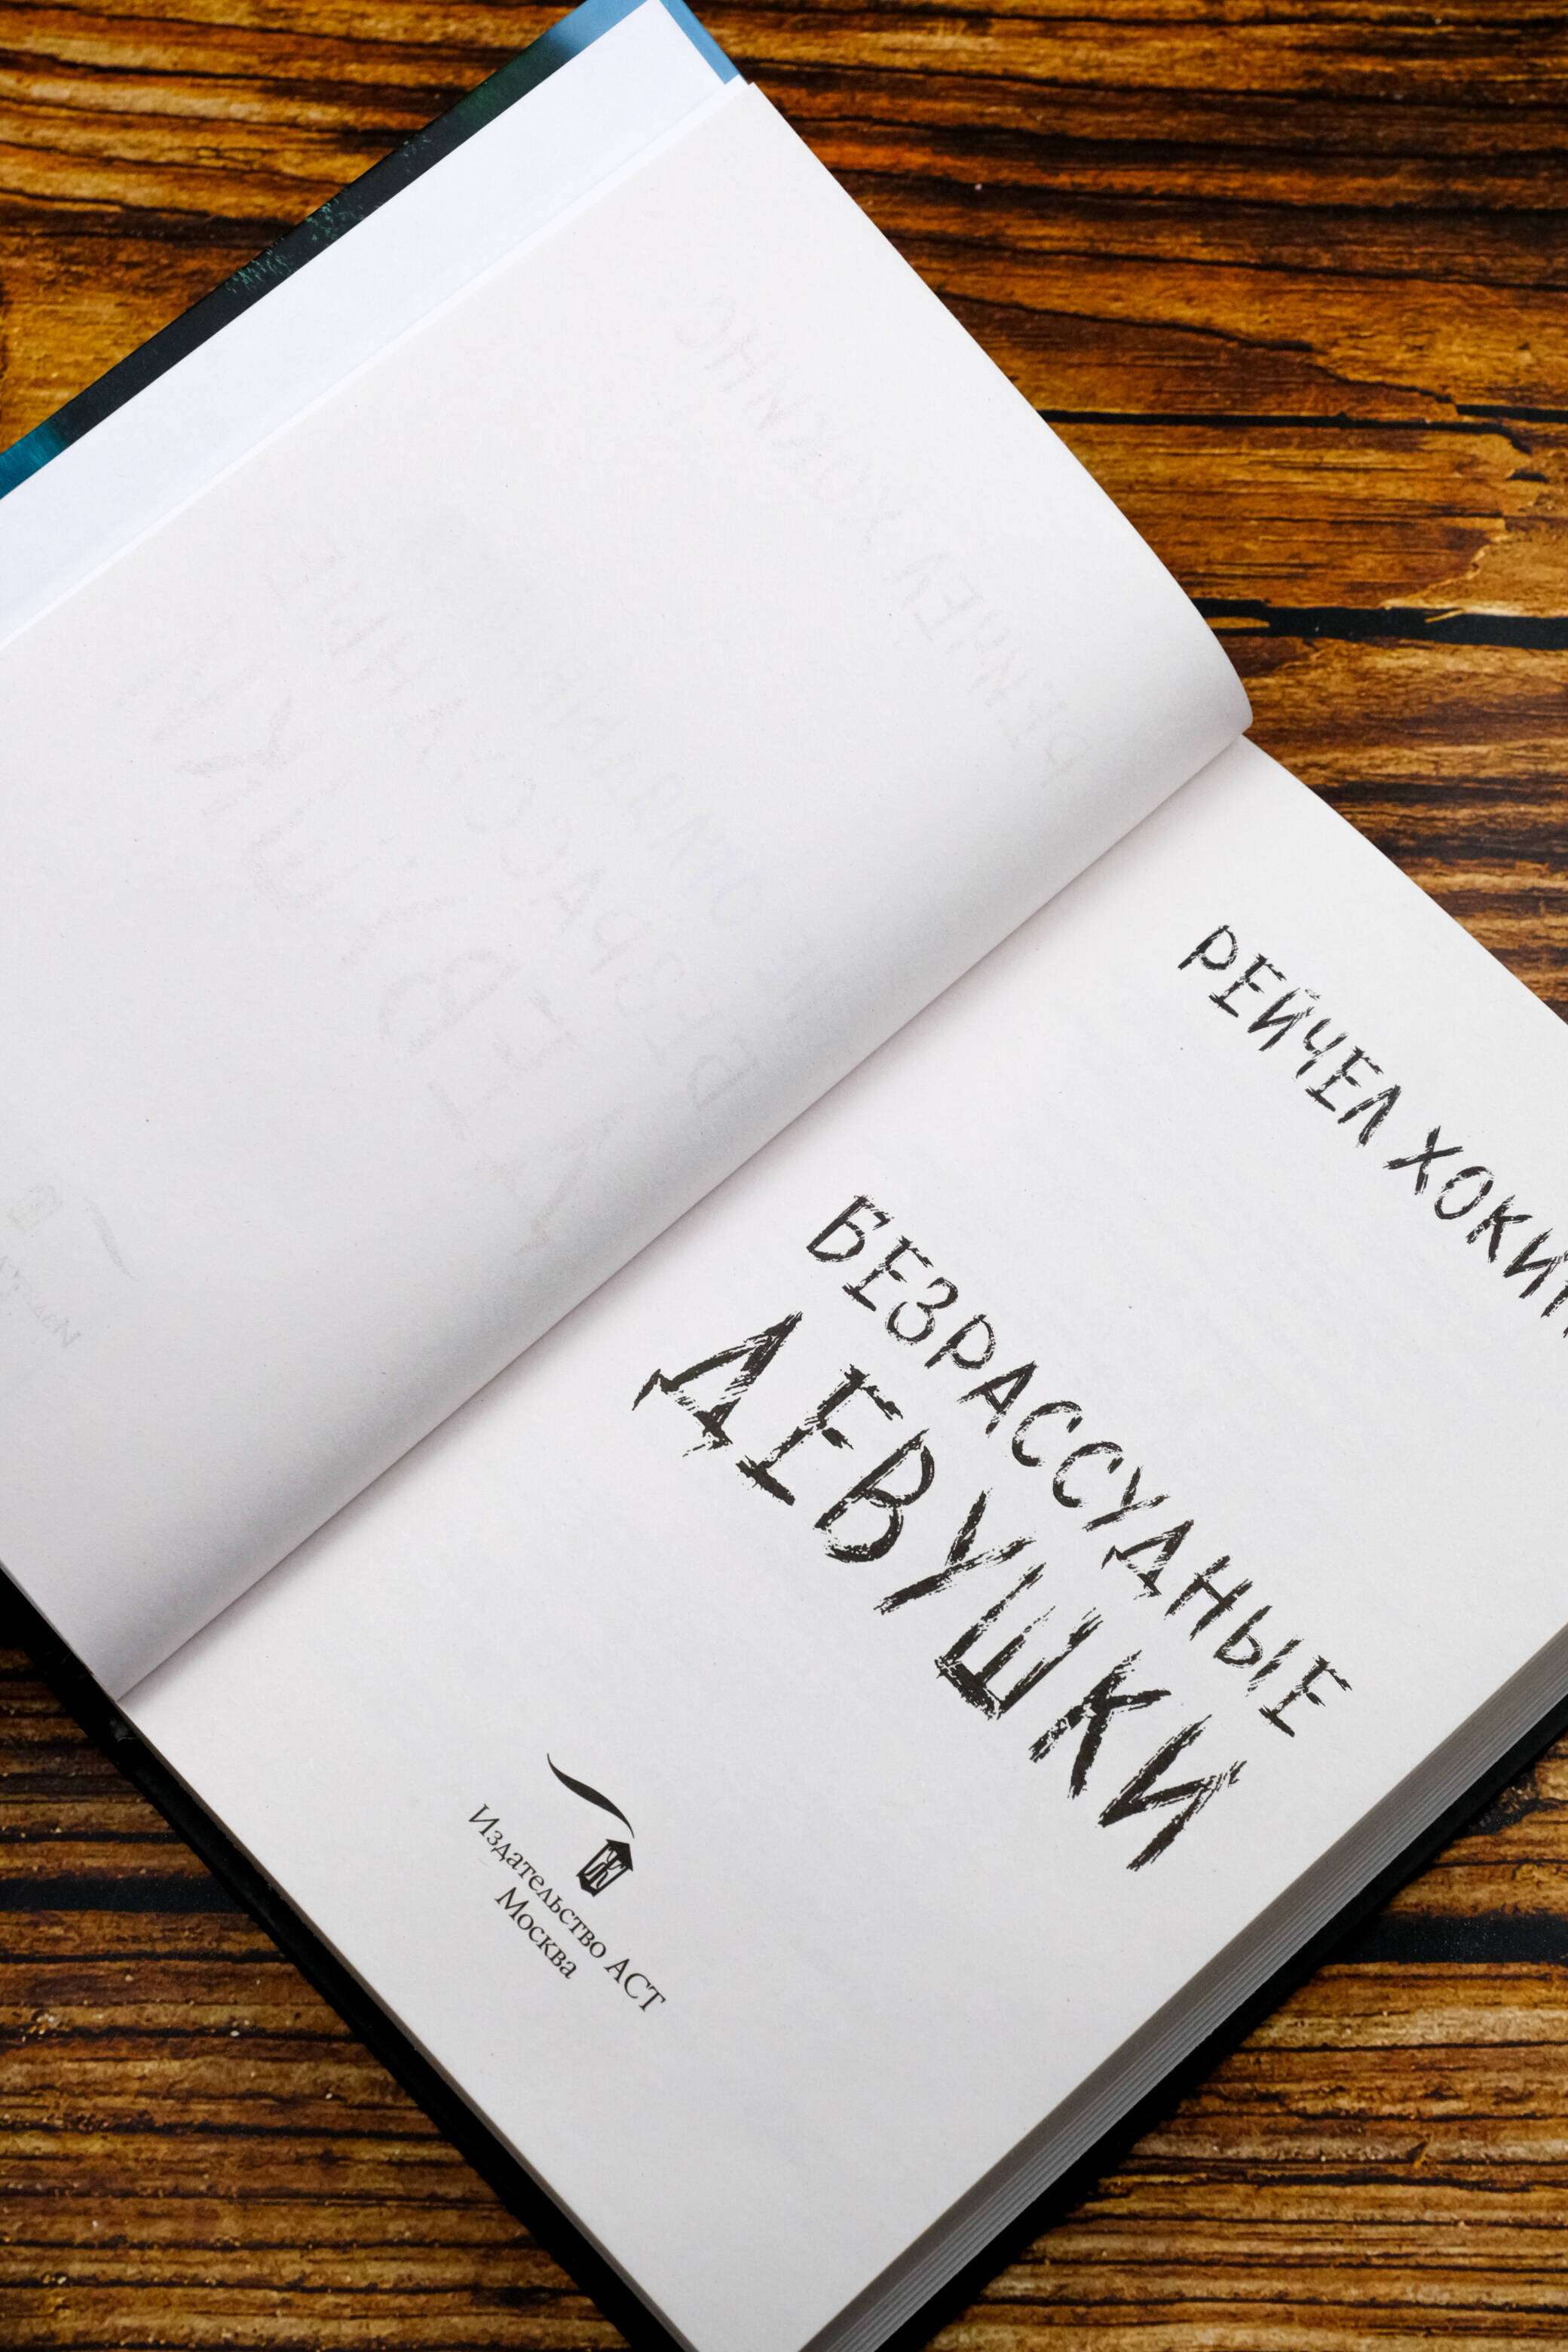 РЕЙЧЕЛ ХОКИН
БЕЗРАССУДНЫЕ
ДЕВУШКИ
Издательство АСТ
Москва